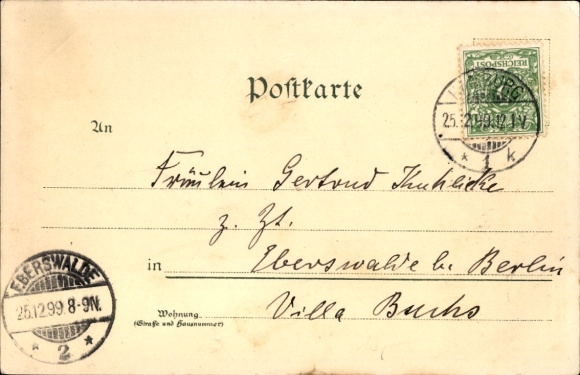 REICHSPOST
Postkarte
25.12.99.12-1V.
* 1 k
An
Fräulein Gertrud
z. Zt.
in Eberswalde b. Berlin
Villa Buchs
Wohnung
(Straße und Hausnummer)
EBERSWALDE
25.12.99.8-9N.
* 2 *